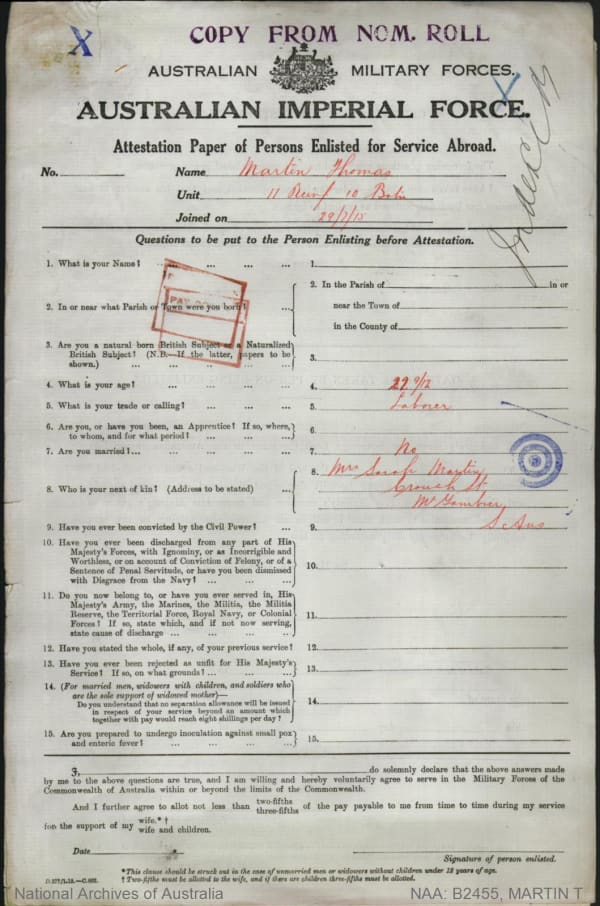 X
COPY FROM NOM. ROLL
AUSTRALIAN MILITARY FORCES.
AUSTRALIAN IMPERIAL FORCE.
Attestation Paper of Persons Enlisted for Service Abroad.
No. Name Martin Thomas
Unit 11 Reinf 10 Batn
Joined on 29/7/15
Indexed
Questions to be put to the Person Enlisting before Attestation.
1. What is your Name? ... ... ... ... 1.
2. In or near what Parish or Town were you born? ... 2. In the Parish of in or
near the Town of
in the County of
PAY
3. Are you a natural born British Subject or a Naturalized
British Subject? (N.B.—If the latter, papers to be
shown.) ... ... ... ... ... 3.
4. What is your age? ... ... ... ... 4. 29 9/12
5. What is your trade or calling? ... ... ... 5. Laborer
6. Are you, or have you been, an Apprentice? If so, where,
to whom, and for what period? ... ... ... 6.
7. Are you married? ... ... ... ... ... 7. No
8. Who is your next of kin? (Address to be stated) ... 8. Mrs Sarah Martin
Crouch St
Mt Gambier
S Aus
9. Have you ever been convicted by the Civil Power? ... 9.
10. Have you ever been discharged from any part of His
Majesty's Forces, with Ignominy, or as Incorrigible and
Worthless, or on account of Conviction of Felony, or of a
Sentence of Penal Servitude, or have you been dismissed
with Disgrace from the Navy? ... ... ... 10.
11. Do you now belong to, or have you ever served in, His
Majesty's Army, the Marines, the Militia, the Militia
Reserve, the Territorial Force, Royal Navy, or Colonial
Forces? If so, state which, and if not now serving,
state cause of discharge ... ... ... ... 11.
12. Have you stated the whole, if any, of your previous service? 12.
13. Have you ever been rejected as unfit for His Majesty's
Service? If so, on what grounds? ... ... ... 13.
14. (For married men, widowers with children, and soldiers who
are the sole support of widowed mother)—
Do you understand that no separation allowance will be issued
in respect of your service beyond an amount which
together with pay would reach eight shillings per day? 14.
15. Are you prepared to undergo inoculation against small pox
and enteric fever? ... ... ... ... 15.
I, do solemnly declare that the above answers made
by me to the above questions are true, and I am willing and hereby voluntarily agree to serve in the Military Forces of the
Commonwealth of Australia within or beyond the limits of the Commonwealth.
And I further agree to allot not less than two-fifths three-fifths of the pay payable to me from time to time during my service
for the support of my wife.*† wife and children.
Date
Signature of person enlisted.
*This clause should be struck out in the case of unmarried men or widowers without children under 18 years of age.
† Two-fifths must be allotted to the wife, and if there are children three-fifths must be allotted.
National Archives of Australia NAA: B2455, MARTIN T